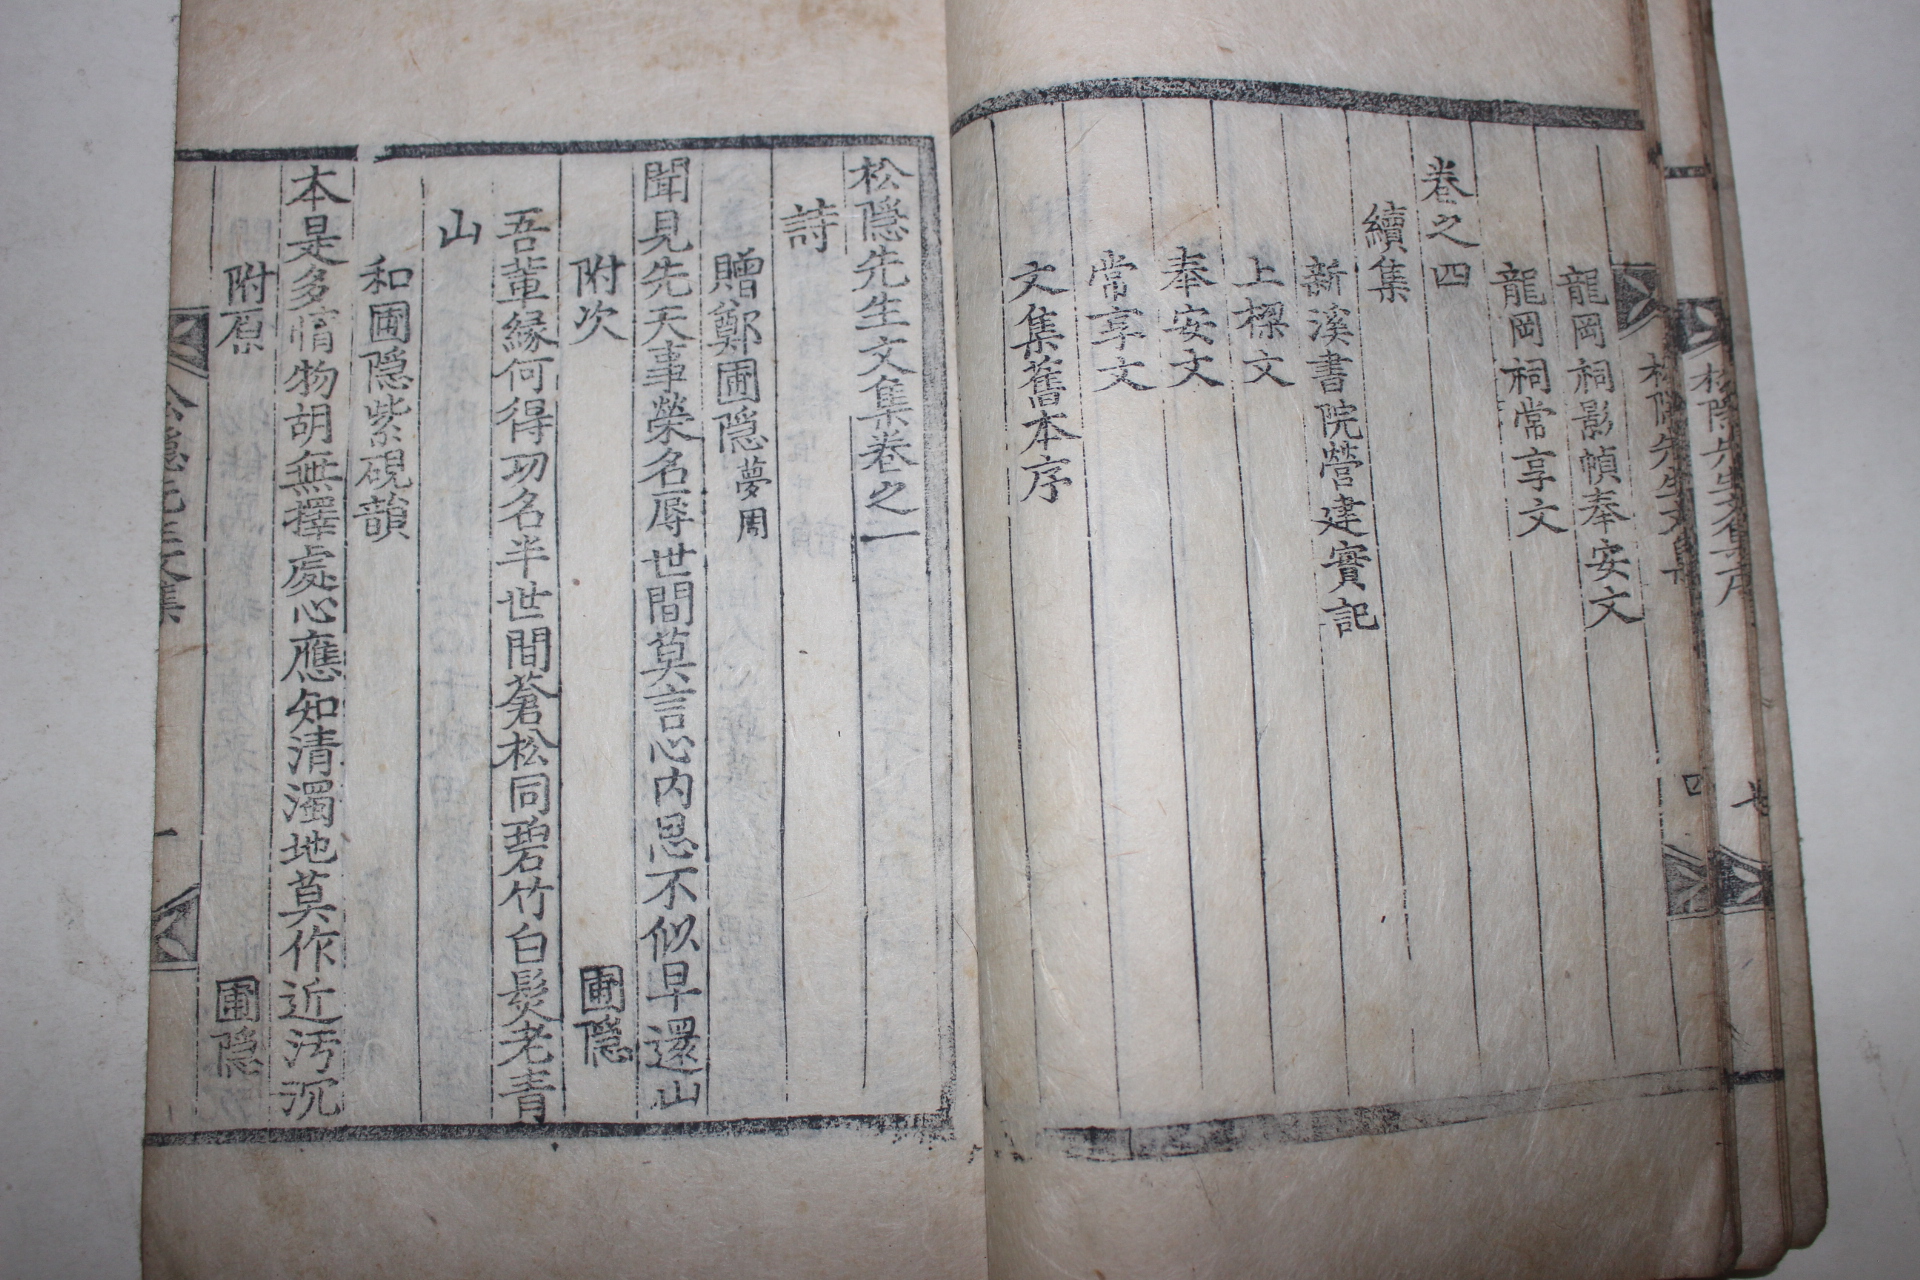 龍岡祠影幀奉安文
龍岡祠常享文
卷之四
續集
新溪書院營建實記
上樑文
奉安文
常享文
文集舊本序
松隱先生文集卷之一
詩
贈鄭圃隱夢周
聞見先天事榮名辱世間莫言心內思不似早還山
附次 圃隱
吾輩緣何得功名半世間蒼松同碧竹白髮老青
山
和圃隱紫硯韻
本是多情物胡無擇處心應知清濁地莫作近汚沉
附原 圃隱
松隱先生文集
一